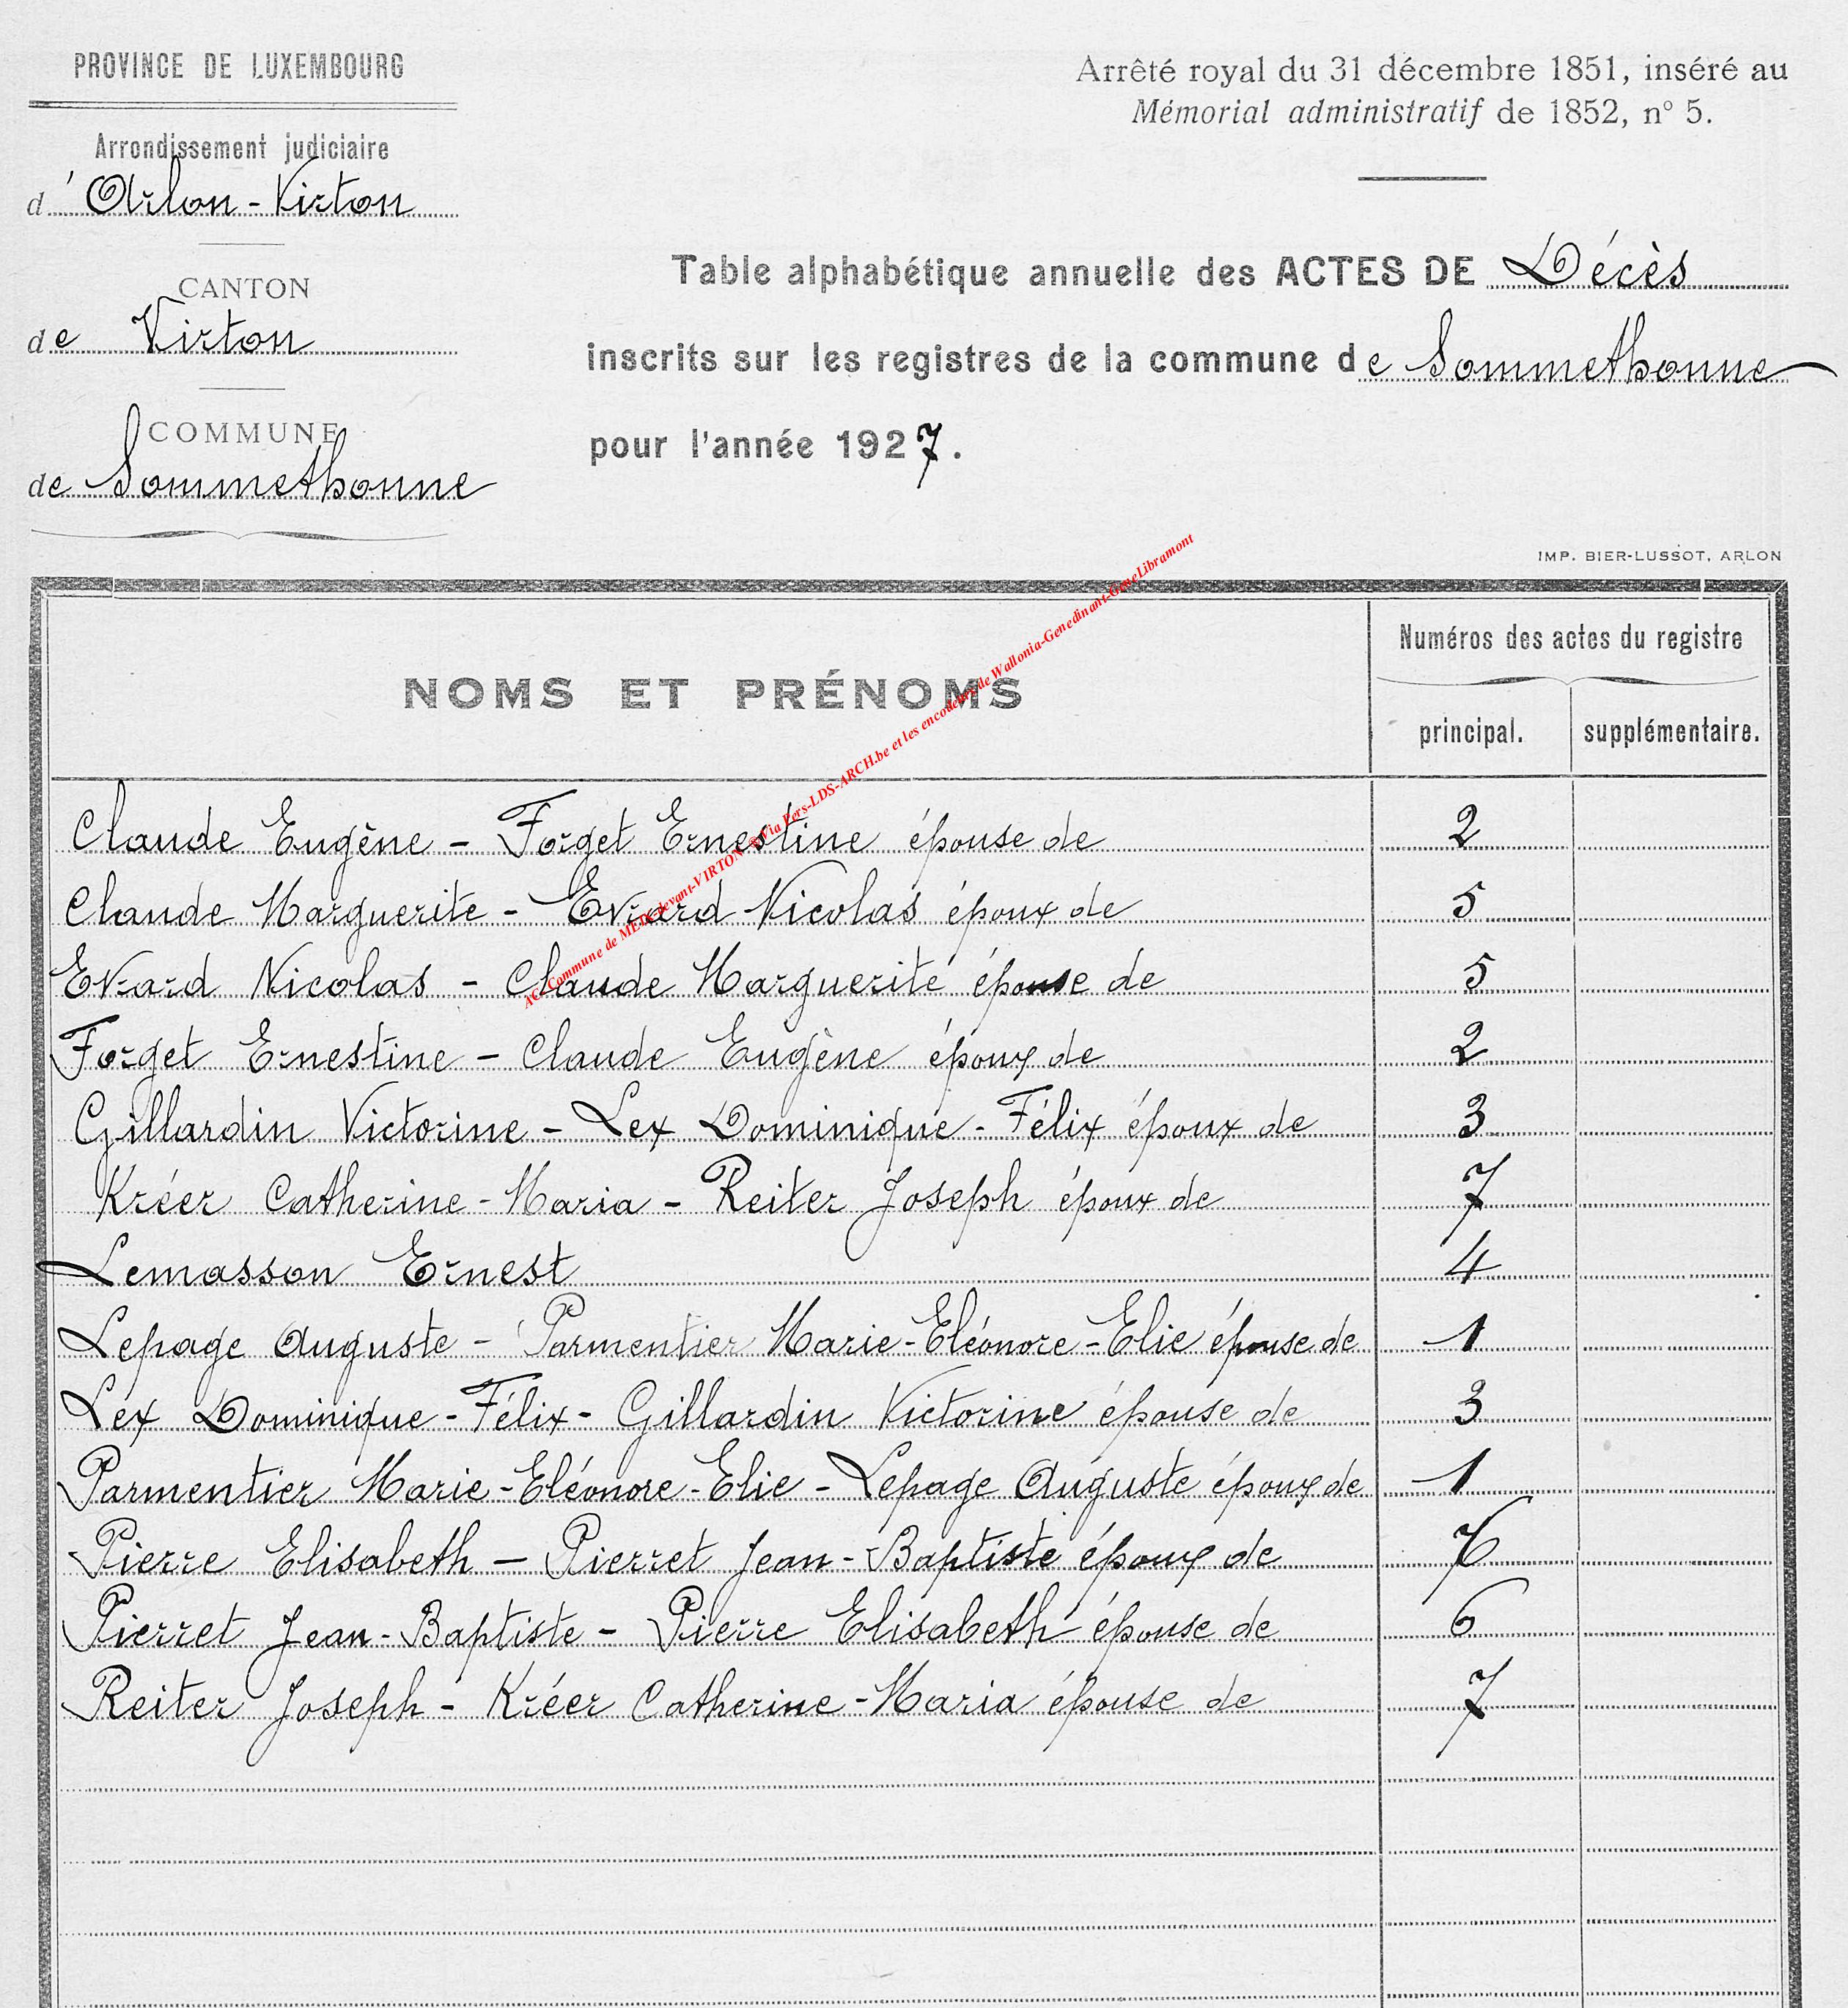 PROVINCE DE LUXEMBOURG
Arrondissement judiciaire
d'Arlon-Virton
CANTON
de Virton
COMMUNE
de Sommethonne
Arrêté royal du 31 décembre 1851, inséré au
Mémorial administratif de 1852, n° 5.
Table alphabétique annuelle des ACTES DE Décès
inscrits sur les registres de la commune de Sommethonne
pour l'année 1927.
IMP. BIER-LUSSOT, ARLON
NOMS ET PRÉNOMS
Numéros des actes du registre
principal. supplémentaire.
Claude Eugène - Forget Ernestine épouse de 2
Claude Marguerite - Evrard Nicolas époux de 5
Evrard Nicolas - Claude Marguerite épouse de 5
Forget Ernestine - Claude Eugène époux de 2
Gillardin Victorine - Lex Dominique-Félix époux de 3
Kréer Catherine-Maria - Reiter Joseph époux de 7
Lemasson Ernest 4
Lepage Auguste - Parmentier Marie-Eléonore-Elie épouse de 1
Lex Dominique-Félix - Gillardin Victorine épouse de 3
Parmentier Marie-Eléonore-Elie - Lepage Auguste époux de 1
Pierre Elisabeth - Pierret Jean-Baptiste époux de 6
Pierret Jean-Baptiste - Pierre Elisabeth épouse de 6
Reiter Joseph - Kréer Catherine-Maria épouse de 7
Commune de devant-VIRTON Via Vers-LDS-ARCH.be et les encodeurs de Wallonia-Genedinant-GeneLibramont